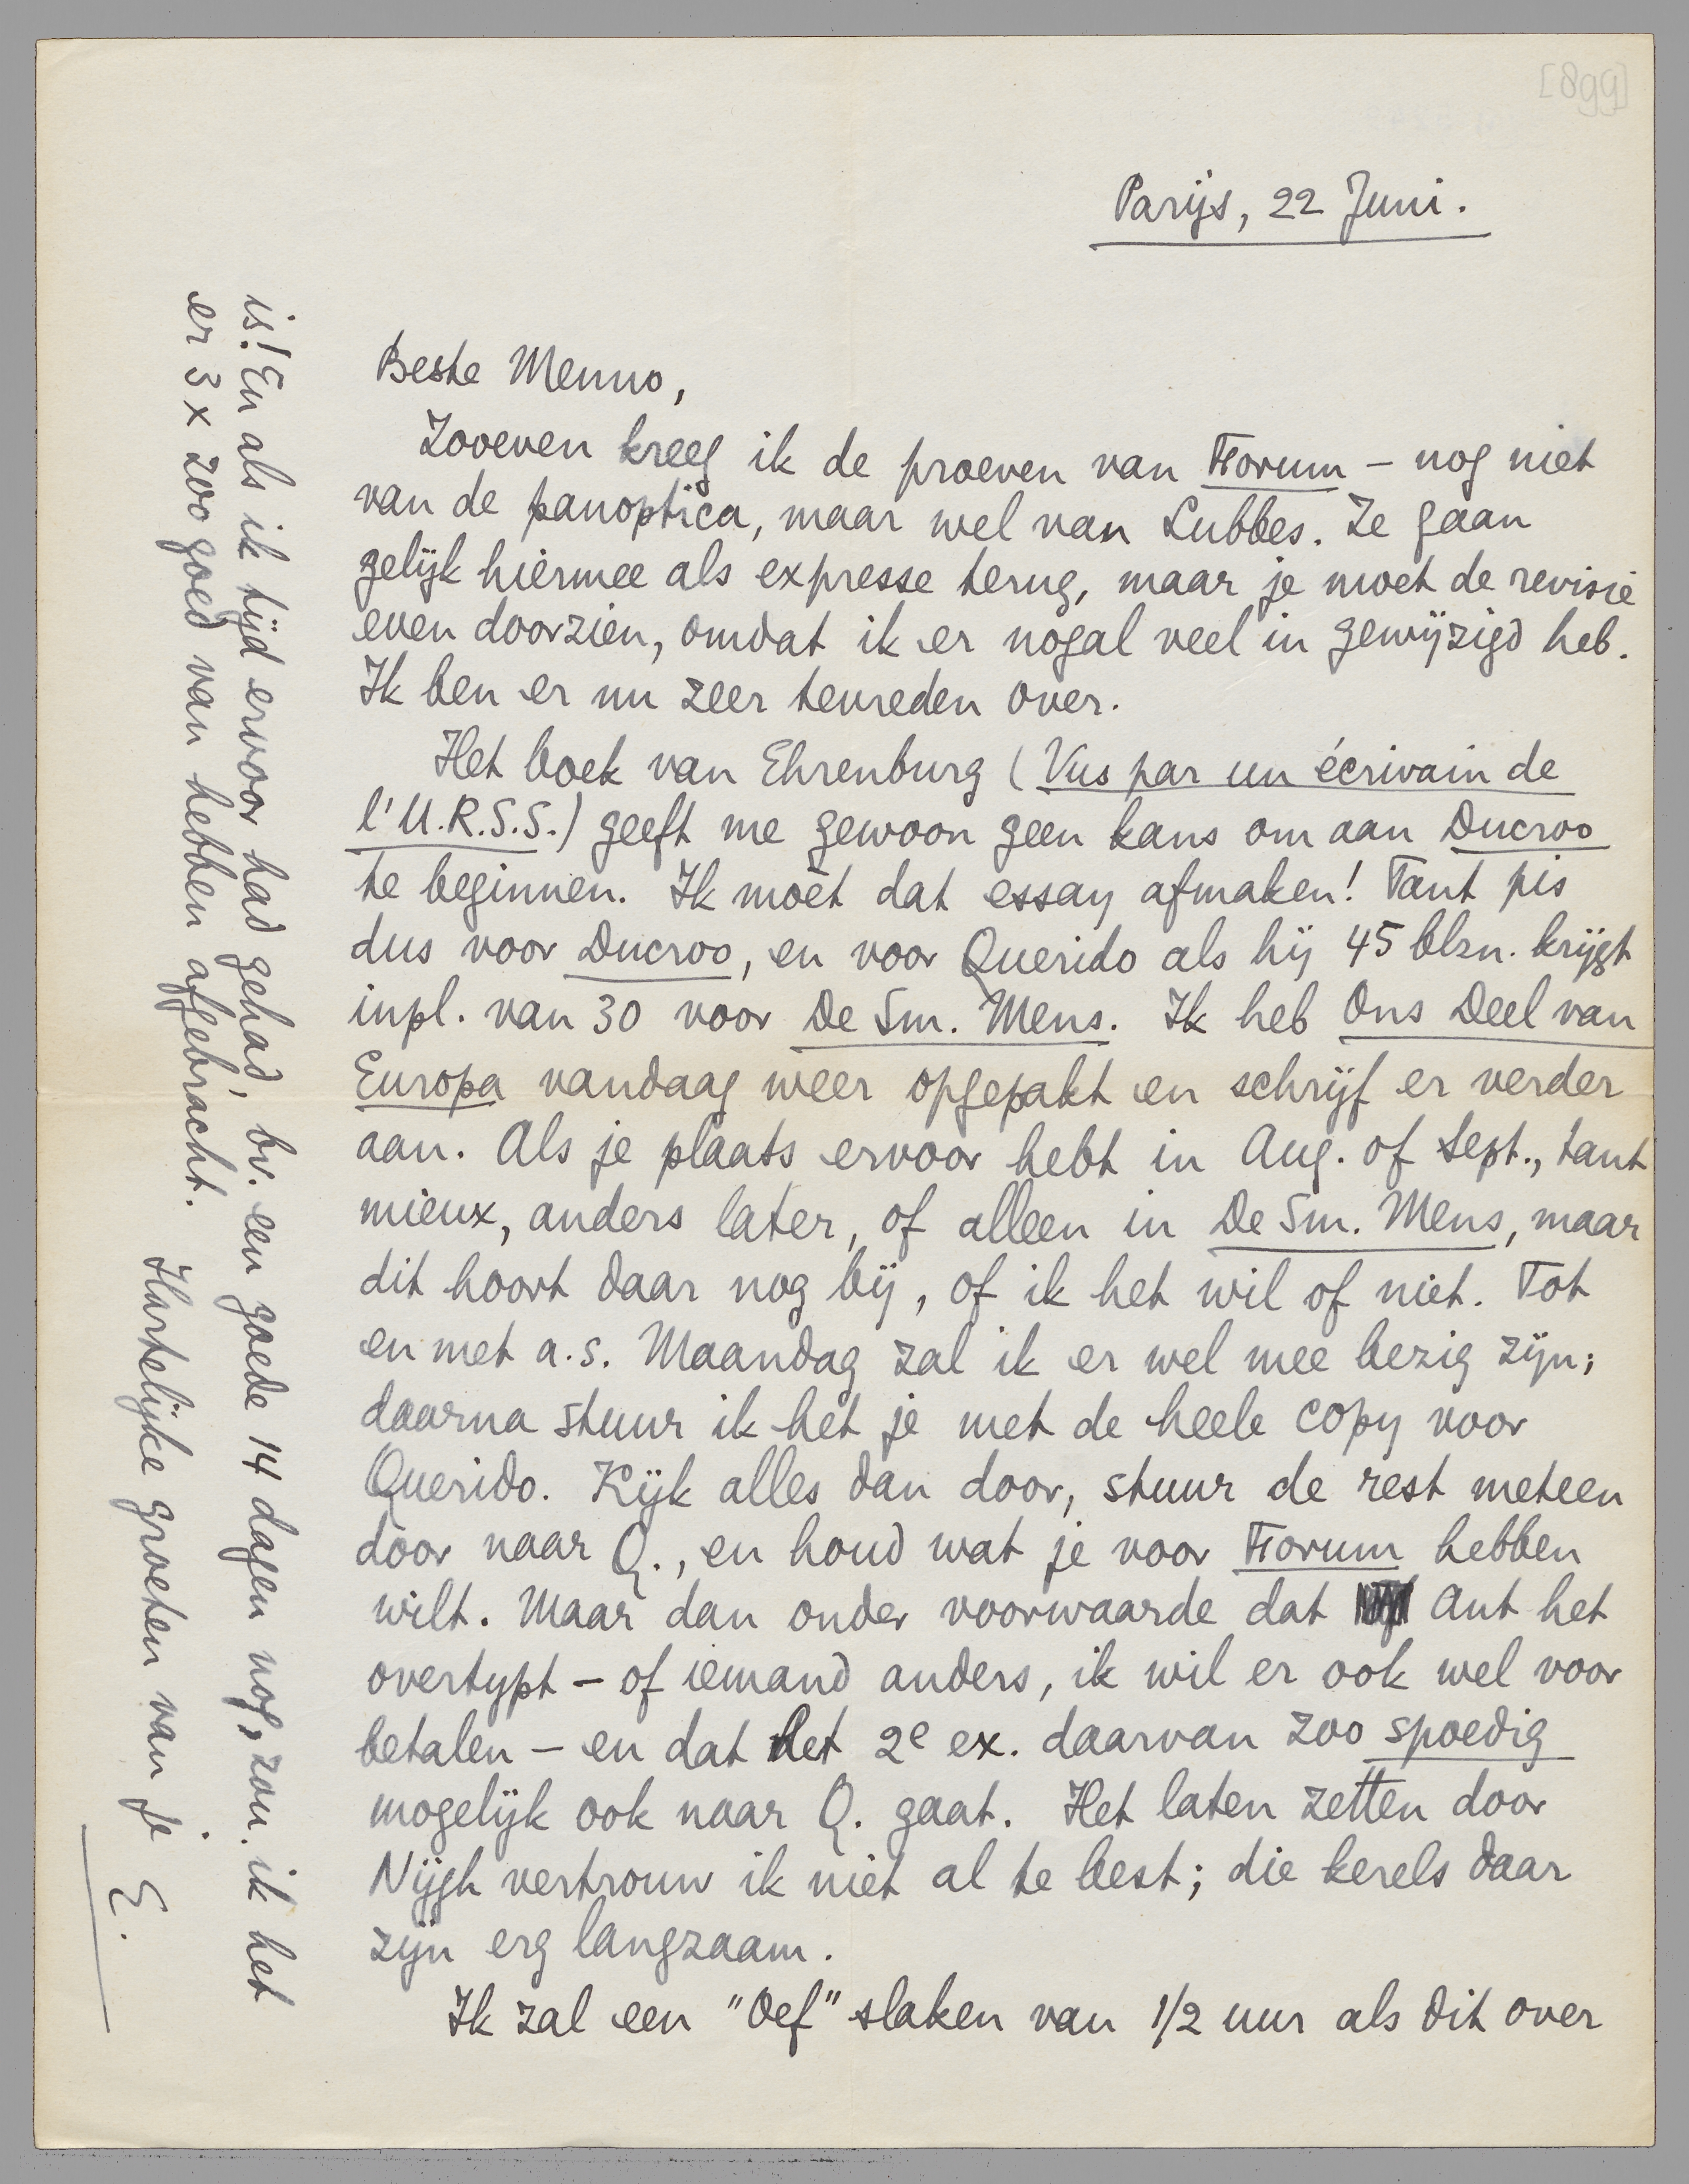 [899]
Parijs, 22 Juni.
Beste Menno,
Zooeven kreeg ik de proeven van Forum – nog niet
van de panoptica, maar wel van Lubbes. Ze gaan
gelijk hiermee als expresse terug, maar je moet de revisie
even doorzien, omdat ik er nogal veel in gewijzigd heb.
Ik ben er nu zeer tevreden over.
Het boek van Ehrenburg (Vus par un écrivain de
l'U.R.S.S.) geeft me gewoon geen kans om aan Ducroo
te beginnen. Ik moèt dat essay afmaken! Tant pis
dus voor Ducroo, en voor Querido als hij 45 blzn. krijgt
inpl. van 30 voor De Sm. Mens. Ik heb Ons Deel van
Europa vandaag weer opgepakt en schrijf er verder
aan. Als je plaats ervoor hebt in Aug. of Sept., tant
mieux, anders later, of alleen in De Sm. Mens, maar
dit hoort daar nog bij, of ik het wil of niet. Tot
en met a.s. Maandag zal ik er wel mee bezig zijn;
daarna stuur ik het je met de heele copy voor
Querido. Kijk alles dan door, stuur de rest meteen
door naar Q., en houd wat je voor Forum hebben
wilt. Maar dan onder voorwaarde dat Ant het
overtypt – of iemand anders, ik wil er ook wel voor
betalen – en dat het 2e ex. daarvan zoo spoedig
mogelijk ook naar Q. gaat. Het laten zetten door
Nijgh vertrouw ik niet al te best; die kerels daar
zijn erg langzaam.
Ik zal een "Oef" slaken van 1/2 uur als dit over
is! En als ik tijd ervoor had gehad, bv. een goede 14 dagen nog, zou ik het
er 3 x zoo goed van hebben afgebracht.
Hartelijke groeten van je
E.